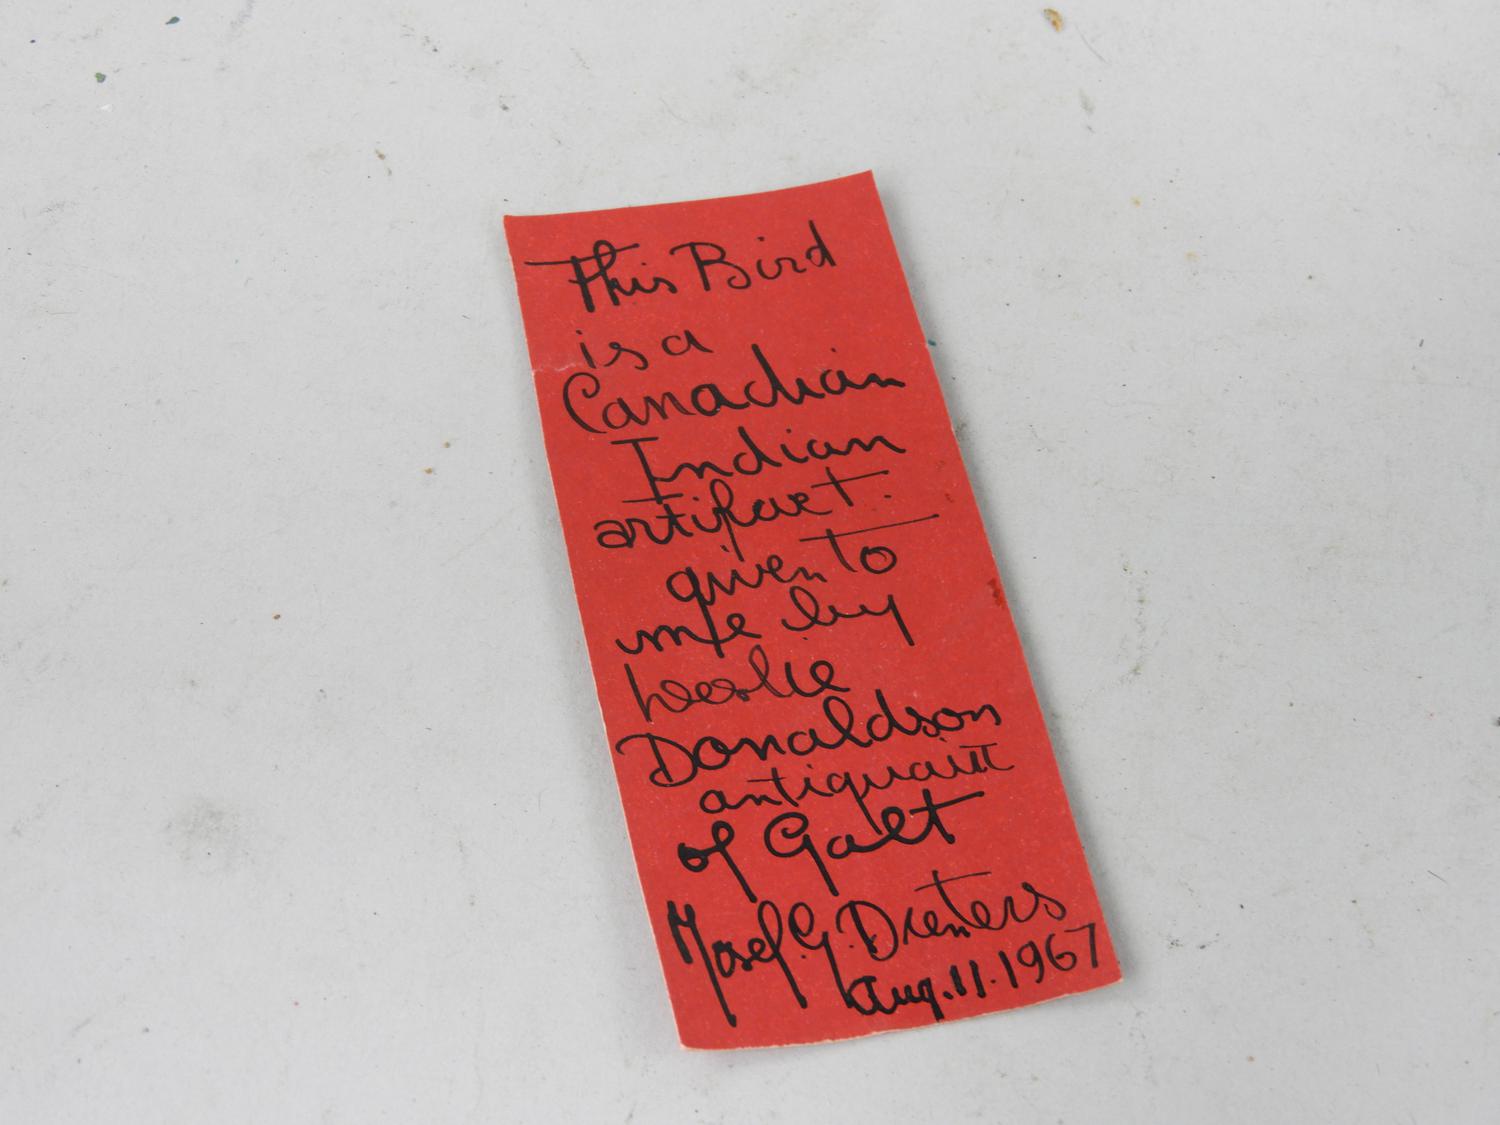 This Bird
is a
Canadian
Indian
artifact.
given to
me by
Leslie
Donaldson
antiquait
of Galt
Josef. G. Drenters
Aug. 11. 1967